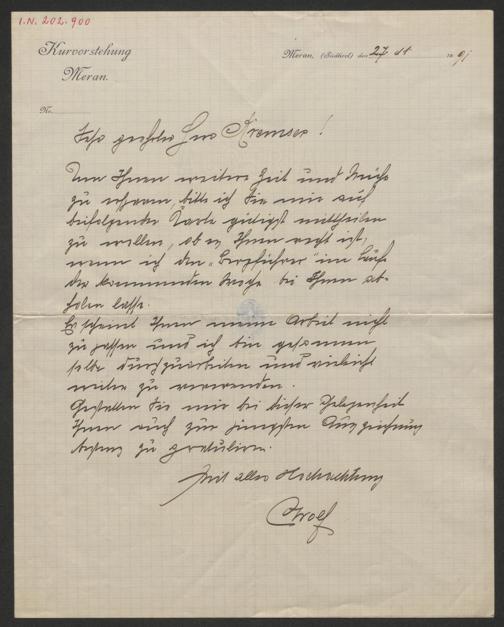 I.N. 202.900
Kurvorstehung
Meran.
Meran, (Südtirol) den 27
No.
Sehr geehrter Herr Kremser!
Um Ihnen weitere Zeit und Mühe
zu ersparen, bitte ich Sie mir auf
beifolgender Karte gütigst mittheilen
zu wollen, ob es Ihnen recht ist,
wenn ich den „Bergführer" im Laufe
der kommenden Woche bei Ihnen ab-
holen lasse.
Es scheint Ihnen meine Arbeit nicht
zu passen und ich bin gesonnen
selbe durchzuarbeiten und vielleicht
weiter zu verwenden.
Gestatten Sie mir bei dieser Gelegenheit
Ihnen auch zur jüngsten Auszeichnung
bestens zu gratuliren.
Mit aller Hochachtung
CWolf